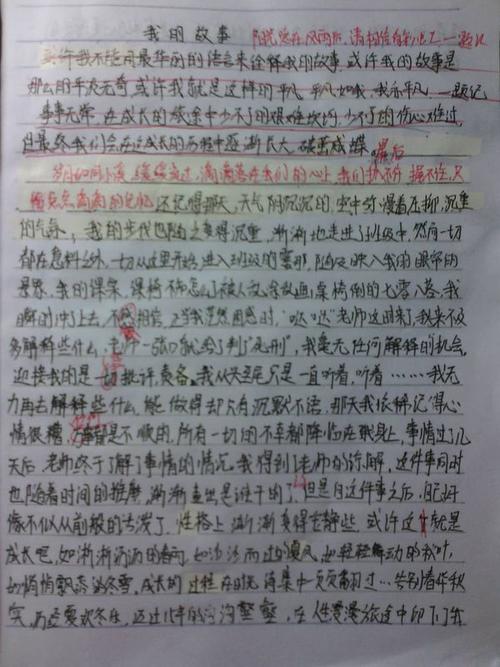 我的故事 阳光总在风雨后,请相信自己 一题记
或许我不适用最华丽的语言来诠释我的故事.或许我的故事是
那么的平淡无奇,或许我就是这样的平凡.平凡如我,我亦平凡 一题记
事事无常,在成长的旅途中少不了的艰难坎坷,少不了的伤心难过,
但最终我们会在这成长的历程中逐渐长大,破茧成蝶.最后
岁月如同小溪,缓缓流过,滴滴落在我们的心上,我们抓不牢,握不住,只
的记忆.还记得那天,天气阴沉沉的,空中弥漫着压抑,沉重
的气息,我的步伐也随之变得沉重,渐渐地走进了班级中,然而一切
都在意料之外,一切从这里开始.进入班级的霎那,随及映入我的眼帘的
景象,我的课桌,课椅不知怎么了被人乱涂乱画,桌椅倒的七零八落.我
瞬时冲上去,不敢相信,正当我茫然困惑时,“哒”“哒”老师这时来了,我来不及
多解释些什么,老师一张口就给了判了“死刑”,我毫无任何解释的机会,
迎接我的是一切批评,责备.我从头至尾只是一直听着,听着……我无
力再去解释些什么,能做得却只有沉默不语,那天我依稀记得心
情很糟,事事是不顺的.所有一切的不幸都降临在我身上,事情过了几
天后,老师终于了解了事情的情况,我得到了老师的谅解,这件事同时
也随着时间的推磨,渐渐查出是谁干的了.但是自这件事之后,自己好
像不似从前般的活泼了,性格上渐渐变得安静些.或许这就是
成长吧,如淅淅沥沥的春雨,如沙沙而过的夏风,如轻轻舞动的秋叶,
如悄悄飘荡的冬雪.成长的过程在时光诗集中一页页翻过…告别春华秋
实,历经夏炊冬住,迈过15年的沟沟壑壑,在人生漫漫旅途中印下了成